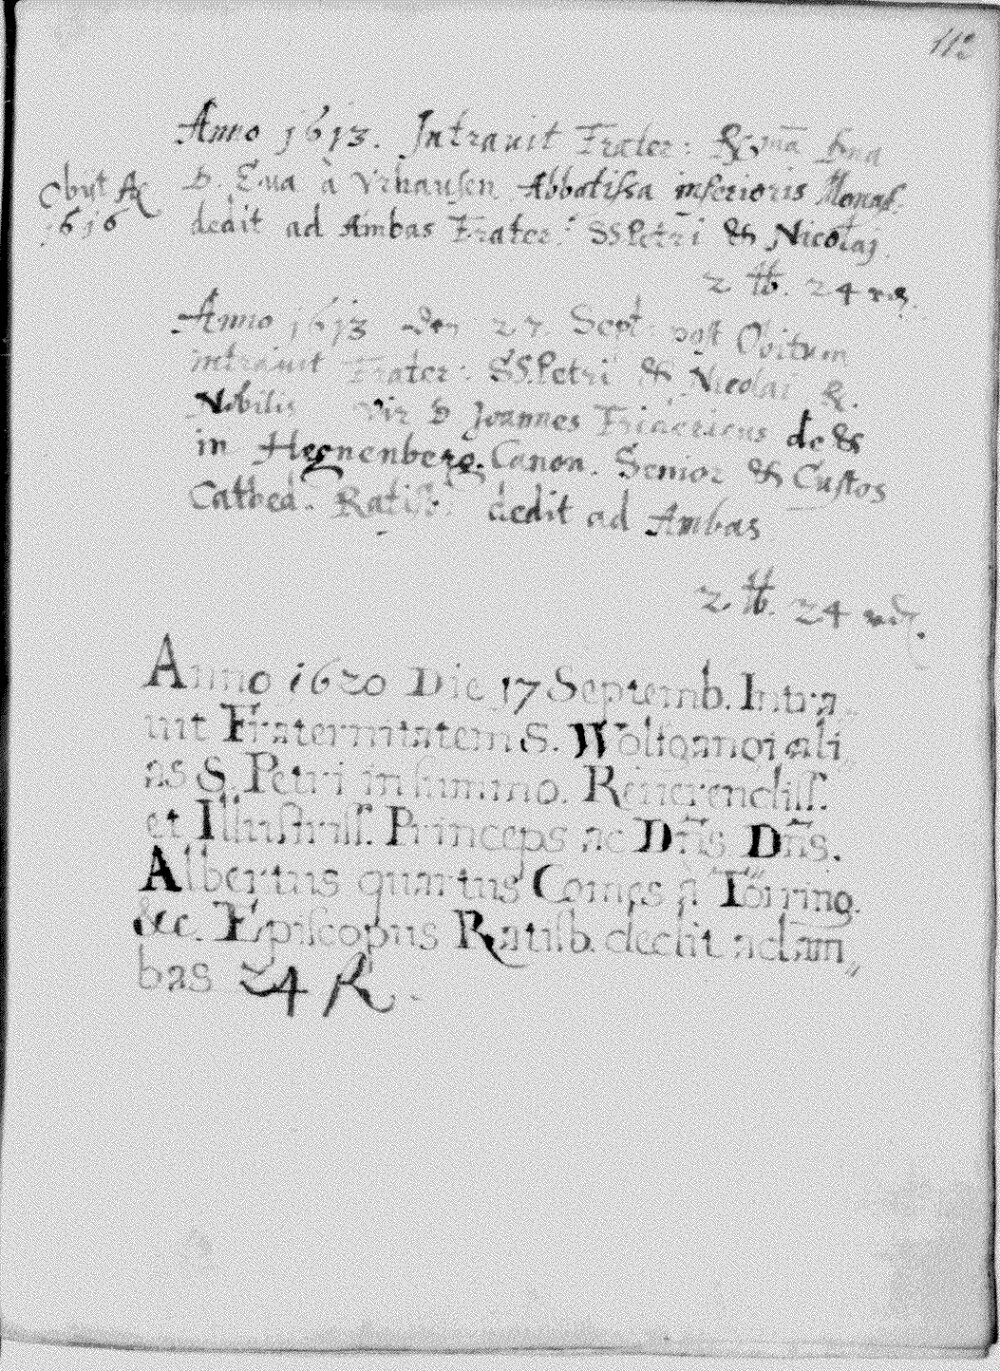 112
Anno 1613. Intrauit Frater: R.ma Dna
Obijt Aº
1616
D. Eua à Vrhausen Abbatissa inferioris Monas.
dedit ad Ambas Frater: SS Petri & Nicolai.
2 ℔. 24
Anno 1613 den 27. Sept: post Obitum
intrauit Frater: SS. Petri & Nicolai &.
Nobilis Vir D Joannes Fridericus de &
in Hegnenberg. Canon. Senior & Custos
Cathed. Ratisb: dedit ad Ambas
2. ℔. 24
Anno 1620 Die 17 Septemb. Intra„
uit Fraternitatem S. Wolfgangi ali„
as S. Petri in summo. Reuerendiss.
et Illustriss. Princeps ac Dñs Dñs.
Albertus quartus Comes à Törring.
&c. Episcopus Ratisb. dedit ad am„
bas 24 R.